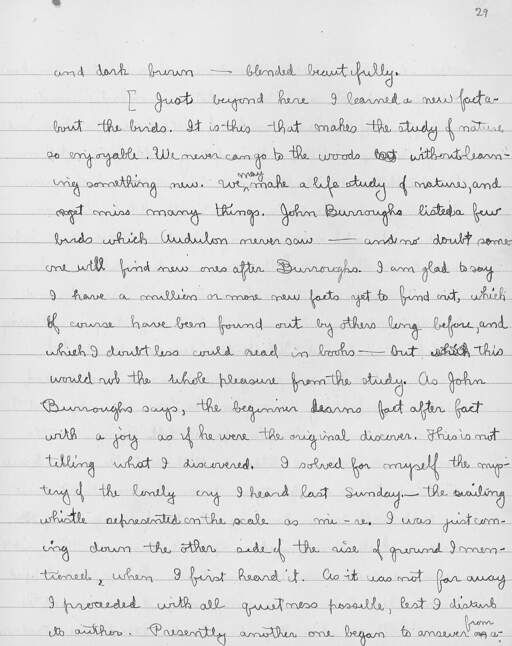 29
and dark brown — blended beautifully.
[ Just beyond here I learned a new fact a-
bout the birds. It is this that makes the study of nature
so enjoyable. We never can go to the woods without learn-
ing something new. We may make a life study of nature, and
yet miss many things. John Burroughs listed a few
birds which Audubon never saw — and no doubt some
one will find new ones after Burroughs. I am glad to say
I have a million or more new facts yet to find out, which
of course have been found out by others long before, and
which I doubtless could read in books — but this
would rob the whole pleasure from the study. As John
Burroughs says, the beginner learns fact after fact
with a joy as if he were the original discover. This is not
telling what I discovered. I solved for myself the mys-
tery of the lonely cry I heard last Sunday — the wailing
whistle represented on the scale as mi-re. I was just com-
ing down the other side of the rise of ground I men-
tioned, when I first heard it. As it was not far away
I proceeded with all quietness possible, lest I disturb
its author. Presently another one began to answer from a-